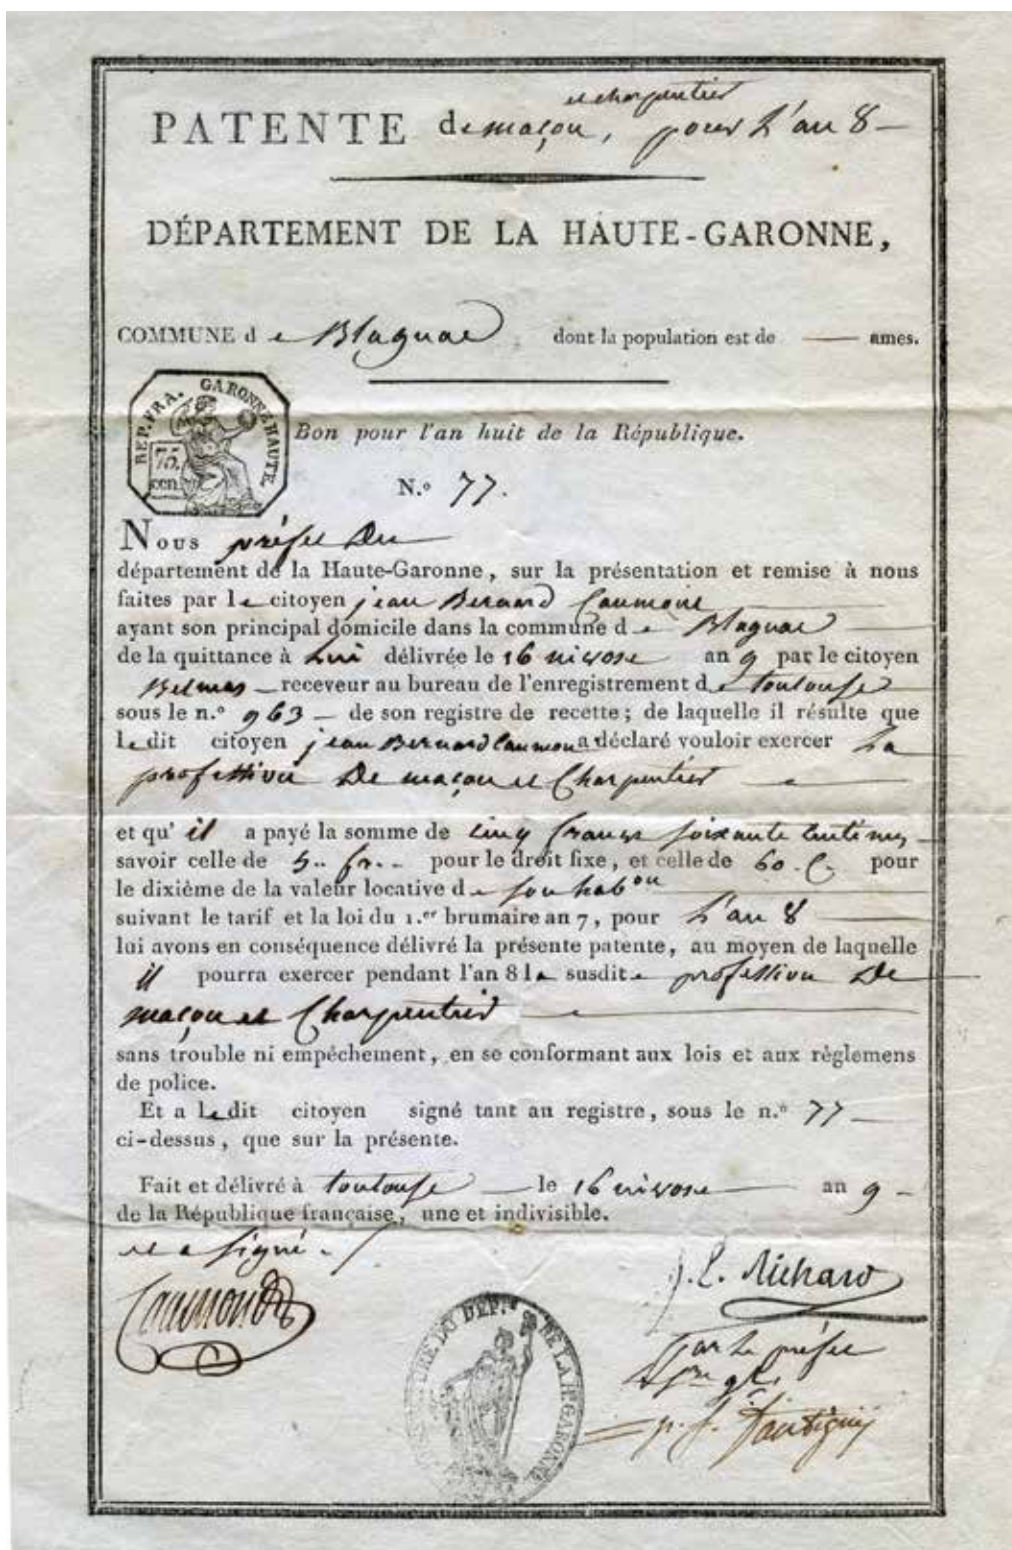 et charpentier
PATENTE de maçon, pour L'an 8
DÉPARTEMENT DE LA HAUTE-GARONNE,
COMMUNE de Blagnac dont la population est de — ames.
REP. FRA. GARONNE HAUTE.
75 cen.
Bon pour l'an huit de la République.
N.° 77.
Nous préfet Du
département de la Haute-Garonne, sur la présentation et remise à nous
faites par le citoyen jean Bernard Caumont
ayant son principal domicile dans la commune de Blagnac
de la quittance à Lui délivrée le 16 nivose an 9 par le citoyen
Belmas receveur au bureau de l'enregistrement de toulouse
sous le n.° 963 — de son registre de recette; de laquelle il résulte que
Ledit citoyen jean Bernard Caumon a déclaré vouloir exercer La
profession De maçon et Charpentier
et qu'il a payé la somme de cinq francs soixante centimes
savoir celle de 5.. fr.. pour le droit fixe, et celle de 60. C. pour
le dixième de la valeur locative de son hab.on
suivant le tarif et la loi du 1.er brumaire an 7, pour L'an 8
lui avons en conséquence délivré la présente patente, au moyen de laquelle
il pourra exercer pendant l'an 8 la susdite profession De
maçon et Charpentier
sans trouble ni empéchement, en se conformant aux lois et aux règlemens
de police.
Et a Ledit citoyen signé tant au registre, sous le n.° 77
ci-dessus, que sur la présente.
Fait et délivré à toulouse le 16 nivose an 9
de la République française, une et indivisible.
et a signé.
Caumont
J. E. Richard
Par Le préfet
DU DEP.T DE LA H.TE GARONNE